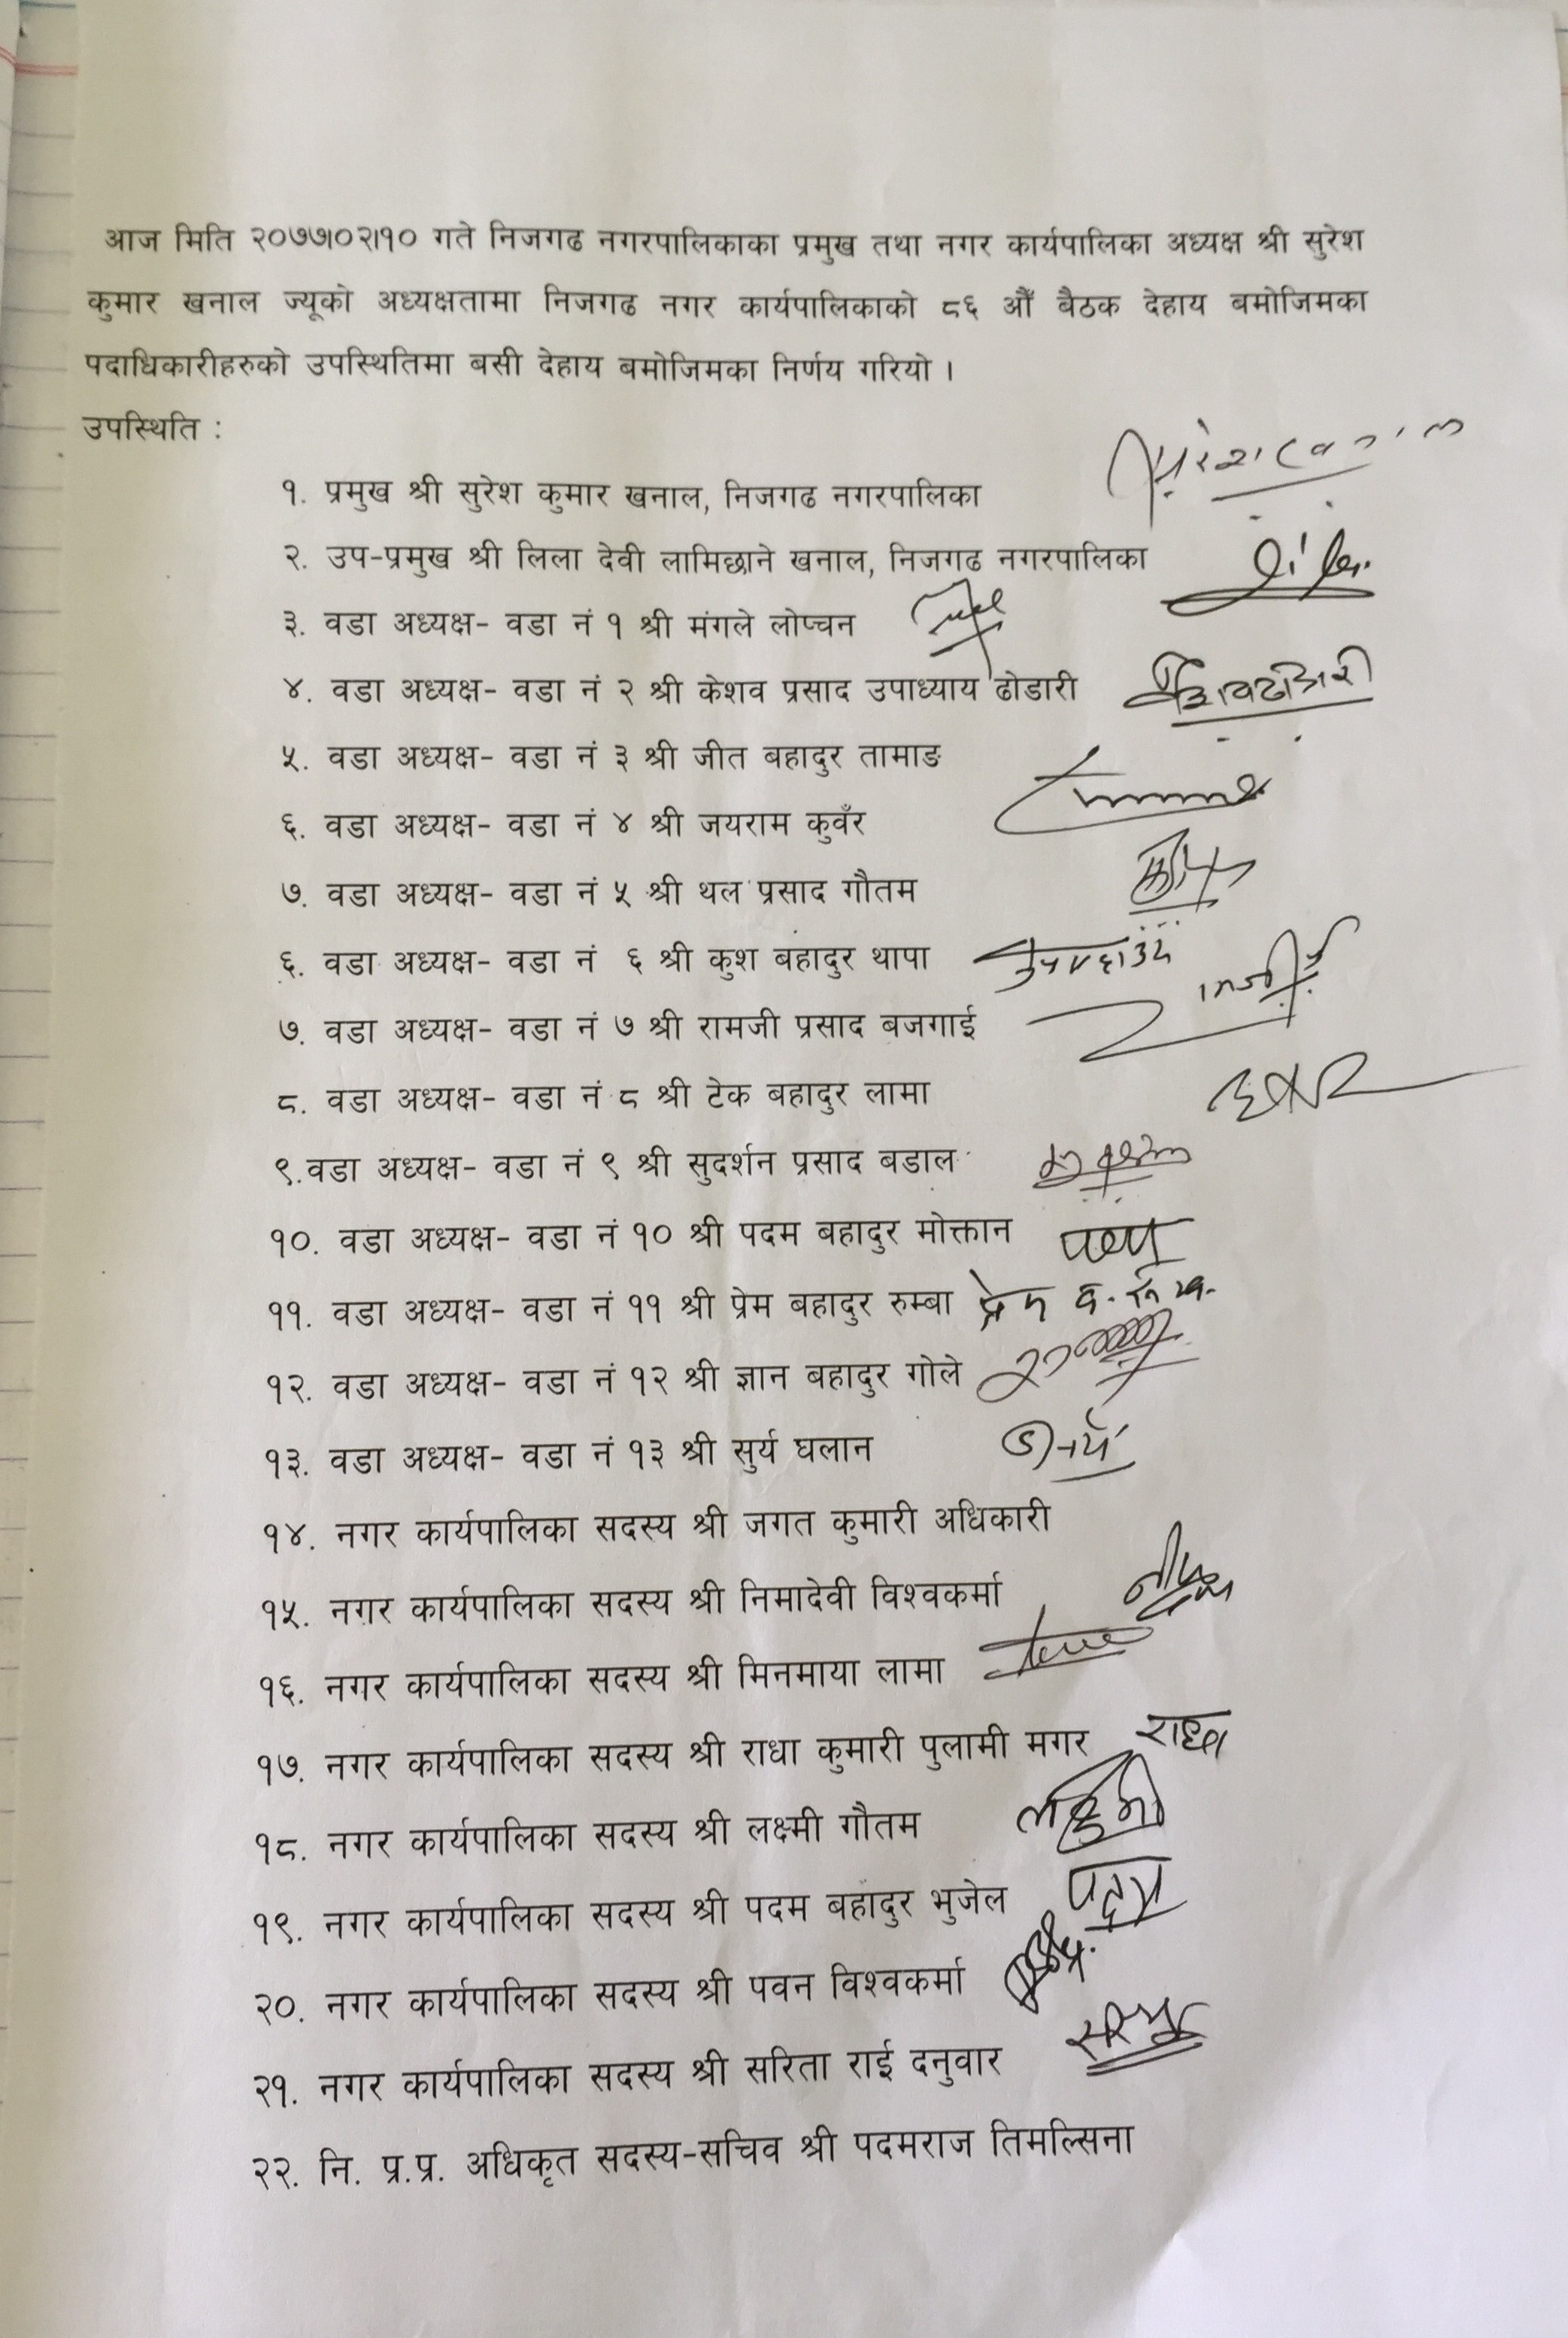 आज मिति २०७७।०२।१० गते निजगढ नगरपालिकाका प्रमुख तथा नगर कार्यपालिका अध्यक्ष श्री सुरेश
कुमार खनाल ज्यूको अध्यक्षतामा निजगढ नगर कार्यपालिकाको ८६ औँ बैठक देहाय बमोजिमका
पदाधिकारीहरुको उपस्थितिमा बसी देहाय बमोजिमका निर्णय गरियो ।
उपस्थिति :
१. प्रमुख श्री सुरेश कुमार खनाल, निजगढ नगरपालिका
२. उप-प्रमुख श्री लिला देवी लामिछाने खनाल, निजगढ नगरपालिका
३. वडा अध्यक्ष- वडा नं १ श्री मंगले लोप्चन
४. वडा अध्यक्ष- वडा नं २ श्री केशव प्रसाद उपाध्याय ढोडारी
५. वडा अध्यक्ष- वडा नं ३ श्री जीत बहादुर तामाङ
६. वडा अध्यक्ष- वडा नं ४ श्री जयराम कुवँर
७. वडा अध्यक्ष- वडा नं ५ श्री थल प्रसाद गौतम
६. वडा अध्यक्ष- वडा नं ६ श्री कुश बहादुर थापा
७. वडा अध्यक्ष- वडा नं ७ श्री रामजी प्रसाद बजगाई
८. वडा अध्यक्ष- वडा नं ८ श्री टेक बहादुर लामा
९.वडा अध्यक्ष- वडा नं ९ श्री सुदर्शन प्रसाद बडाल
१०. वडा अध्यक्ष- वडा नं १० श्री पदम बहादुर मोक्तान
११. वडा अध्यक्ष- वडा नं ११ श्री प्रेम बहादुर रुम्बा
१२. वडा अध्यक्ष- वडा नं १२ श्री ज्ञान बहादुर गोले
१३. वडा अध्यक्ष- वडा नं १३ श्री सुर्य घलान
१४. नगर कार्यपालिका सदस्य श्री जगत कुमारी अधिकारी
१५. नगर कार्यपालिका सदस्य श्री निमादेवी विश्वकर्मा
१६. नगर कार्यपालिका सदस्य श्री मिनमाया लामा
१७. नगर कार्यपालिका सदस्य श्री राधा कुमारी पुलामी मगर राधा
१८. नगर कार्यपालिका सदस्य श्री लक्ष्मी गौतम
१९. नगर कार्यपालिका सदस्य श्री पदम बहादुर भुजेल
२०. नगर कार्यपालिका सदस्य श्री पवन विश्वकर्मा
२१. नगर कार्यपालिका सदस्य श्री सरिता राई दनुवार
२२. नि. प्र.प्र. अधिकृत सदस्य-सचिव श्री पदमराज तिमल्सिना